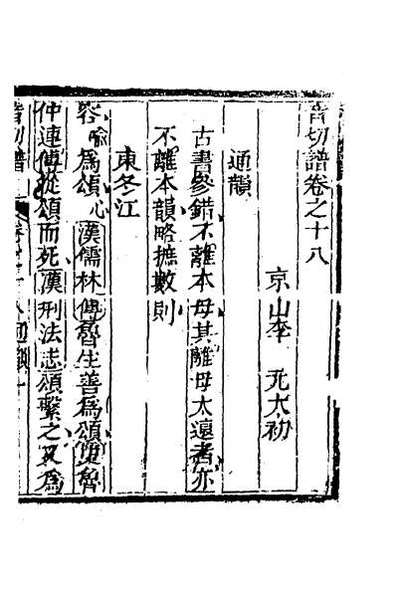 音切譜卷之十八
京山李元太初
通韻
古書參錯不離本母其離母太遠者亦
不離本韻略摭數則
東冬江
容喻為頌心漢儒林傳魯生善為頌史魯
仲連傳從頌而死漢刑法志頌繫之又為
音切譜